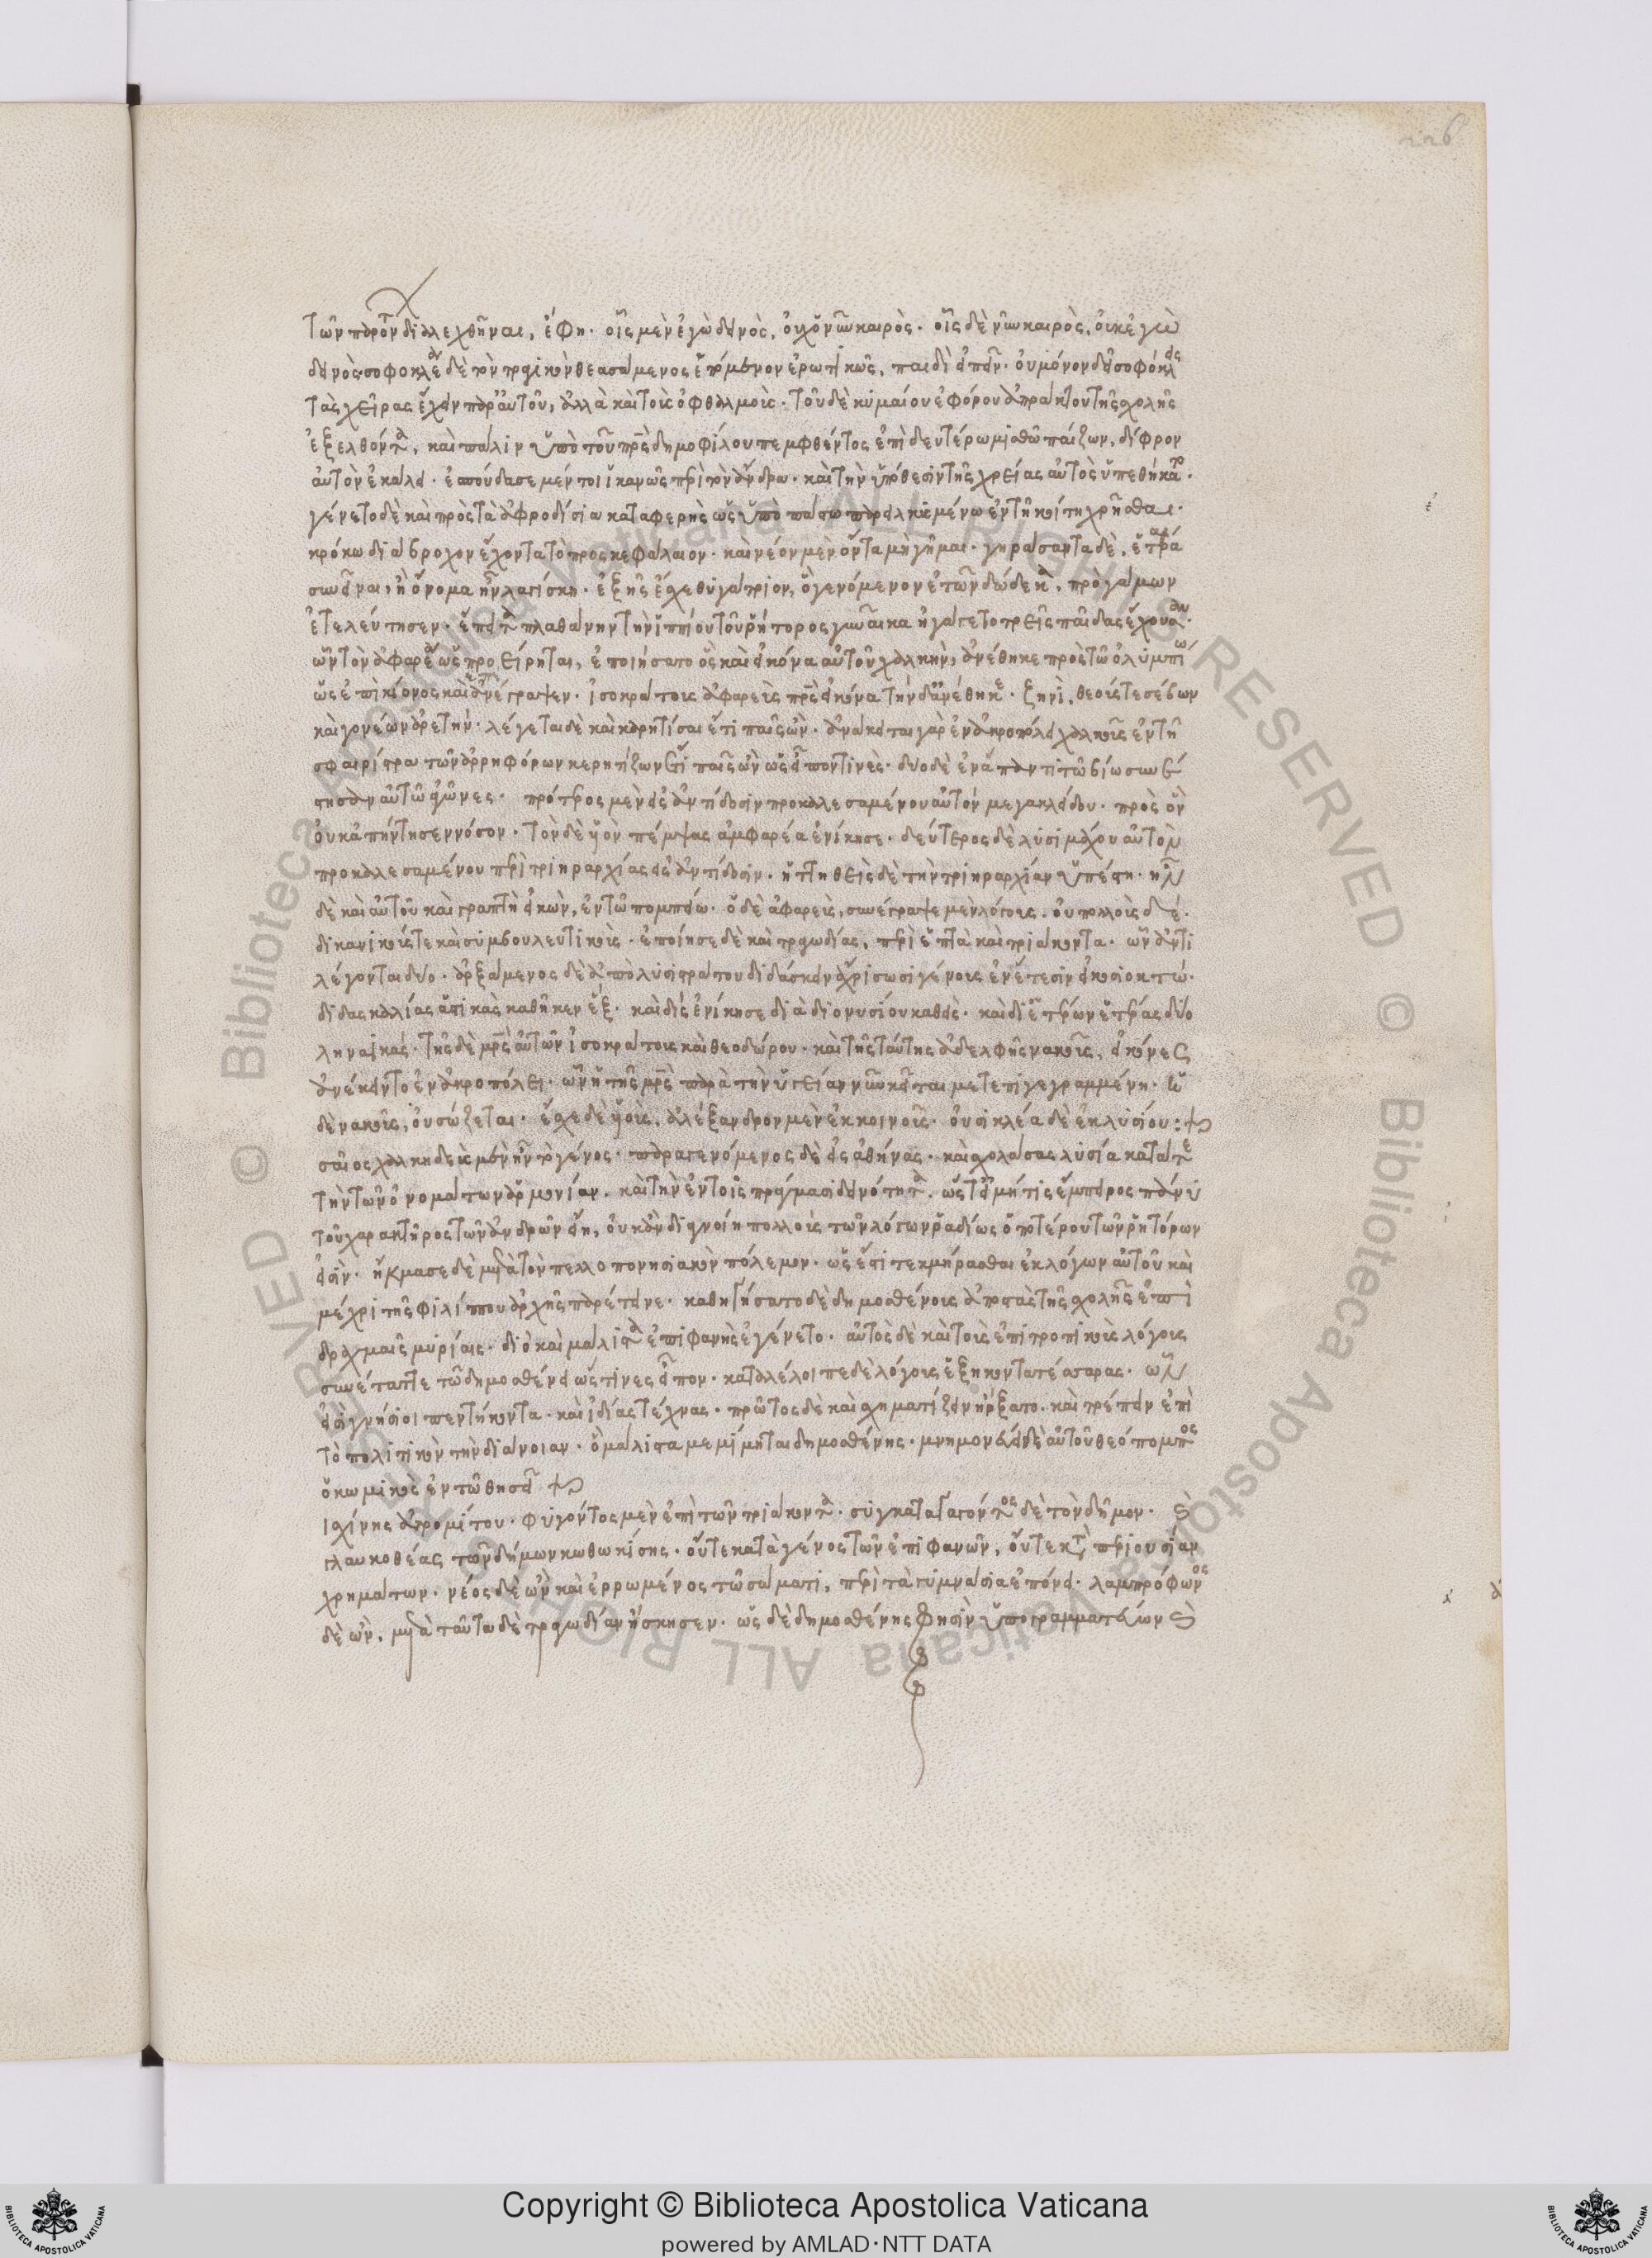 226
τῶν παρόντων διαλεχθῆναι, ἔφη· οἷς μὲν ἐγὼ δεινὸς, οὐχ ὁ νῦν καιρὸς· οἷς δὲ νῦν καιρὸς, οὐκ ἐγὼ
δεινὸς· σοφοκλέα δὲ τὸν τραγικὸν θεασάμενος ἑπόμενον ἐρωτικῶς, παιδὶ εἶπεν· οὐ μόνον δεῖ σοφόκλεις
τὰς χεῖρας ἔχειν παρ' αὑτοῦ, ἀλλὰ καὶ τοὺς ὀφθαλμοὺς· τοῦ δὲ κυμαίου ἐφόρου ἀπράκτου τῆς σχολῆς
ἐξελθόντος, καὶ πάλιν ὑπὸ τοῦ πατρὸς δημοφίλου πεμφθέντος ἐπὶ δευτέρω μισθῶ παίζων, δίφρον
αὐτὸν ἐκάλει· ἐσπούδασε μέντοι ἱκανῶς περὶ τὸν ἄνδρα· καὶ τὴν ὑπόθεσιν τῆς χρείας αὐτὸς ὑπεθήκατο·
γένετο δὲ καὶ πρὸς τὰ ἀφροδίσια καταφερὴς ὡς ὑπὸ πάσω παρειλκυσμένω ἐν τῆ κοίτη χρῆσθαι·
κρόκω διάβροχον ἔχοντα τὸ προσκεφάλαιον· καὶ νέον μὲν ὄντα μὴ γῆμαι· γηράσαντα δὲ, ἑταίρα
συνεῖναι, ἧ ὄνομα ἦν λαγίσκη· ἐξ ἧς ἔσχε θυγάτριον, ὃ γενόμενον ἐτῶν δώδεκα, πρὸ γάμων
ἐτελεύτησεν· ἔπειτα πλαθάνην τὴν ἱππίου τοῦ ῥήτορος γυναῖκα ἠγάγετο τρεῖς παῖδας ἔχουσαν·
ὧν τὸν ἀφαρέα ὡς προείρηται, ἐποιήσατο ὃς καὶ εἰκόνα αὐτοῦ χαλκῆν, ἀνέθηκε πρὸς τῶ ὀλυμπίω
ὡς ἐπὶ κίονος καὶ ἐπέγραψεν· ἰσοκράτους ἀφαρεὺς πατρὸς εἰκόνα τήνδ' ἀνέθηκε· ζηνὶ, θεούς τε σέβων
καὶ γονέων ἀρετήν· λέγεται δὲ καὶ κερητίσαι ἔτι παῖς ὤν· ἀνάκειται γὰρ ἐν ἀκροπόλει χαλκοῦς ἐν τῆ
σφαιρίστρα τῶν ἀρρηφόρων κερητίζων ἔτι παῖς ὢν ὡς εἶπόν τινες· δύο δὲ ἐν ἅπαντι τῶ βίω συνέ
στησαν αὐτῶ ἀγῶνες· πρότερος μὲν εἰς ἀντίδοσιν προκαλεσαμένου αὐτὸν μεγακλείδου· πρὸς ὃν
οὐκ ἀπήντησεν νόσον· τὸν δὲ υἱὸν πέμψας ἀμφαρέα ἐνίκησε· δεύτερος δὲ λυσιμάχου αὐτὸν
προκαλεσαμένου περὶ τριηραρχίας εἰς ἀντίδοσιν· ἡττηθεὶς δὲ τὴν τριηραρχίαν ὑπέστη· ἦν
δὲ καὶ αὐτοῦ καὶ γραπτὴ εἰκὼν, ἐν τῶ πομπείω· ὁ δὲ ἀφαρεὺς, συνέγραψε μὲν λόγους, οὐ πολλοὺς δέ·
δικανικούς τε καὶ συμβουλευτικούς· ἐποίησε δὲ καὶ τραγωδίας, περὶ ἑπτὰ καὶ τριάκοντα· ὧν ἀντι
λέγονται δύο· ἀρξάμενος δὲ ἀπὸ λυσιστράτου διδάσκειν ἄχρι σωσιγένους ἐν ἔτεσιν εἰκοσιοκτώ·
διδασκαλίας ἀστικὰς καθῆκεν ἕξ· καὶ δὶς ἐνίκησε διὰ διονυσίου καθεὶς· καὶ δι' ἑτέρων ἑτέρας δύο
ληναϊκάς· τῆς δὲ μητρὸς αὐτῶν ἰσοκράτους καὶ θεοδώρου· καὶ τῆς ταύτης ἀδελφῆς νακοῦς, εἰκόνες
ἀνέκειντο ἐν ἀκροπόλει· ὧν ἡ τῆς μητρὸς παρὰ τὴν ὑγείαν νῦν κεῖται μετεπιγεγραμμένη· ἡ
δὲ νακοῦς, οὐ σώζεται· ἔσχε δὲ υἱοὺς, ἀλέξανδρον μὲν ἐκ κοινοῦς· οὐσικλέα δὲ ἐκ λυσίου:
σαῖος χαλκιδεὺς μὲν ἦν τὸ γένος· παραγενόμενος δὲ εἰς ἀθήνας· καὶ σχολάσας λυσία κατά τε
τὴν τῶν ὀνομάτων ἁρμονίαν, καὶ τὴν ἐν τοῖς πράγμασι δεινότητα, ὥστ' εἰ μή τις ἔμπειρος πάνυ
τοῦ χαρακτῆρος τῶν ἀνδρῶν εἴη, οὐκ ἂν διαγνοίη πολλοὺς τῶν λόγων ῥαδίως ὁποτέρου τῶν ῥητόρων
εἰσὶν· ἤκμασε δὲ μετὰ τὸν πελλοπονησιακὸν πόλεμον· ὡς ἔστι τεκμήρασθαι ἐκ λόγων αὐτοῦ καὶ
μέχρι τῆς φιλίππου ἀρχῆς παρέτεινε· καθηγήσατο δὲ δημοσθένους ἀποστὰς τῆς σχολῆς ἐπὶ
δραχμαῖς μυρίαις· διὸ καὶ μάλιστα ἐπιφανὴς ἐγένετο· αὐτὸς δὲ καὶ τοὺς ἐπιτροπικοὺς λόγους
συνέταττε τῶ δημοσθένει ὥς τινες εἶπον· καταλέλοιπε δὲ λόγους ἑξήκοντα τέσσαρας· ὧν
εἰσὶ γνήσιοι πεντήκοντα· καὶ ἰδίας τέχνας· πρῶτος δὲ καὶ σχηματίζειν ἤρξατο· καὶ τρέπειν ἐπὶ
τὸ πολιτικὸν τὴν διάνοιαν· ὃ μάλιστα μεμίμηται δημοσθένης· μνημονεύει δὲ αὐτοῦ θεόπομπος
ὁ κωμικὸς ἐν τῶ θησεῖ
ισχίνης ἀτρομίτου· φυγόντος μὲν ἐπὶ τῶν τριάκοντα· συγκαταγαγόντος δὲ τὸν δῆμον· καὶ
γλαυκοθέας τῶν δήμων κοθωκίσης· οὔτε κατὰ γένος τῶν ἐπιφανῶν, οὔτε κατὰ περιουσίαν
χρημάτων· νέος δὲ ὢν καὶ ἐρρωμένος τῶ σώματι, περὶ τὰ γυμνάσια ἐπόνει· λαμπρόφωνος
δὲ ὢν, μετὰ ταῦτα δὲ τραγωδίαν ἤσκησεν· ὡς δὲ δημοσθένης φησὶν ὑπογραμματεύων καὶ
Copyright © Biblioteca Apostolica Vaticana
powered by AMLAD·NTT DATA